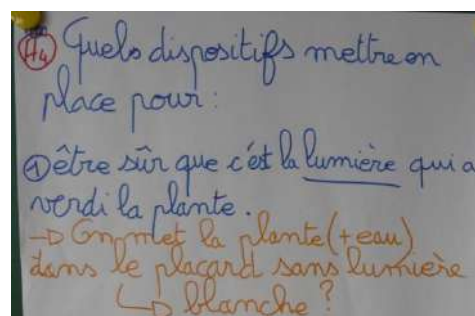 H4 Quels dispositifs mettre en
place pour :
① être sûr que c'est la lumière qui a
verdi la plante.
→ On met la plante (+ eau)
dans le placard sans lumière
↳ blanche ?